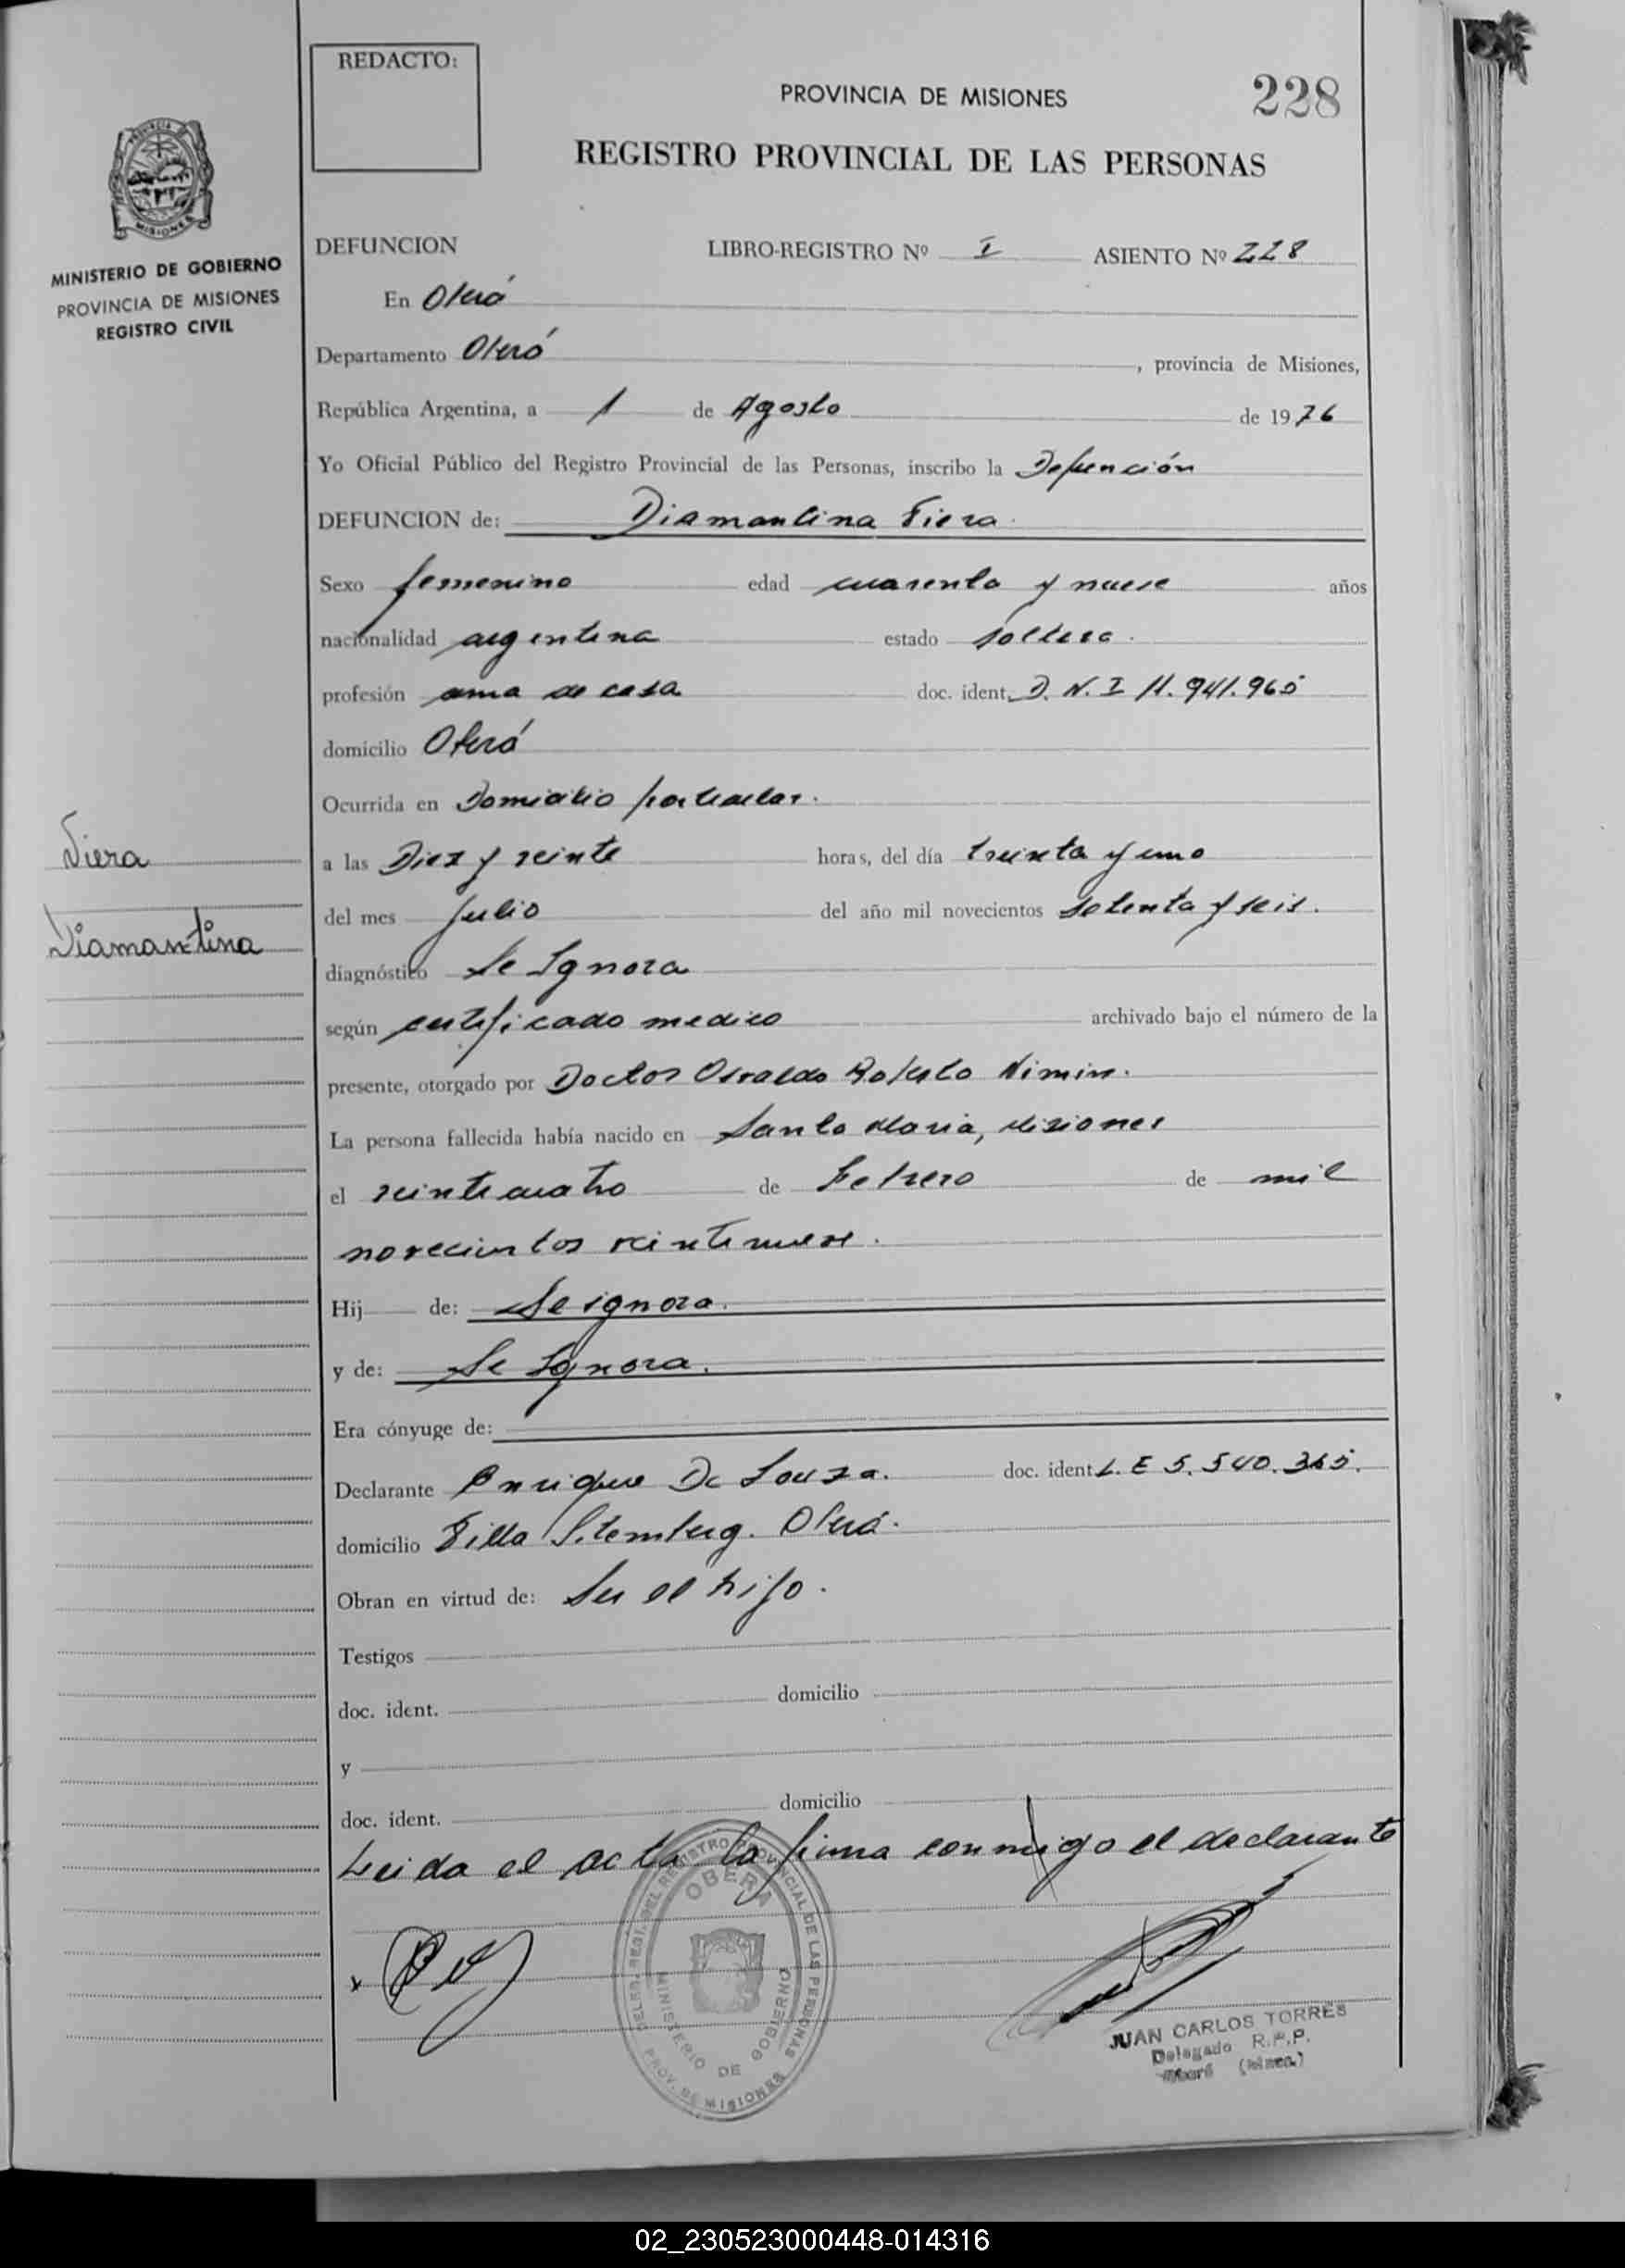 REDACTO:
PROVINCIA DE MISIONES
228
REGISTRO PROVINCIAL DE LAS PERSONAS
PROVINCIA DE
MISIONES
MINISTERIO DE GOBIERNO
PROVINCIA DE MISIONES
REGISTRO CIVIL
DEFUNCION LIBRO-REGISTRO Nº I ASIENTO Nº 228
En Oberá
Departamento Oberá, provincia de Misiones,
República Argentina, a 1 de Agosto de 1976
Yo Oficial Público del Registro Provincial de las Personas, inscribo la Defunción
DEFUNCION de: Diamantina Viera.
Sexo femenino edad cuarenta y nueve años
nacionalidad argentina estado soltera.
profesión ama de casa doc. ident. D. N. I 11.941.965
domicilio Oberá
Ocurrida en Domicilio particular.
Viera
a las Diez y veinte horas, del día treinta y uno
del mes Julio del año mil novecientos setenta y seis.
Diamantina
diagnóstico Se Ignora
según certificado medico archivado bajo el número de la
presente, otorgado por Doctor Osvaldo Roberto
La persona fallecida había nacido en Santa Maria, Misiones
el veinticuatro de Febrero de mil
novecientos veintinueve.
Hij de: Se ignora.
y de: Se Ignora.
Era cónyuge de:
Declarante Enrique De Souza. doc. ident L. E 5.540.365.
domicilio Villa Stemberg. Oberá.
Obran en virtud de: Ser el hijo.
Testigos
doc. ident. domicilio
y
doc. ident. domicilio
Leida el acta la firma conmigo el declarante
DELEG. REGI. DEL REGISTRO PROVINCIAL DE LAS PERSONAS
OBERA
MINISTERIO DE GOBIERNO
PROV. DE MISIONES
JUAN CARLOS TORRES
Delegado R.P.P.
Oberá (Mnes.)
02_230523000448-014316